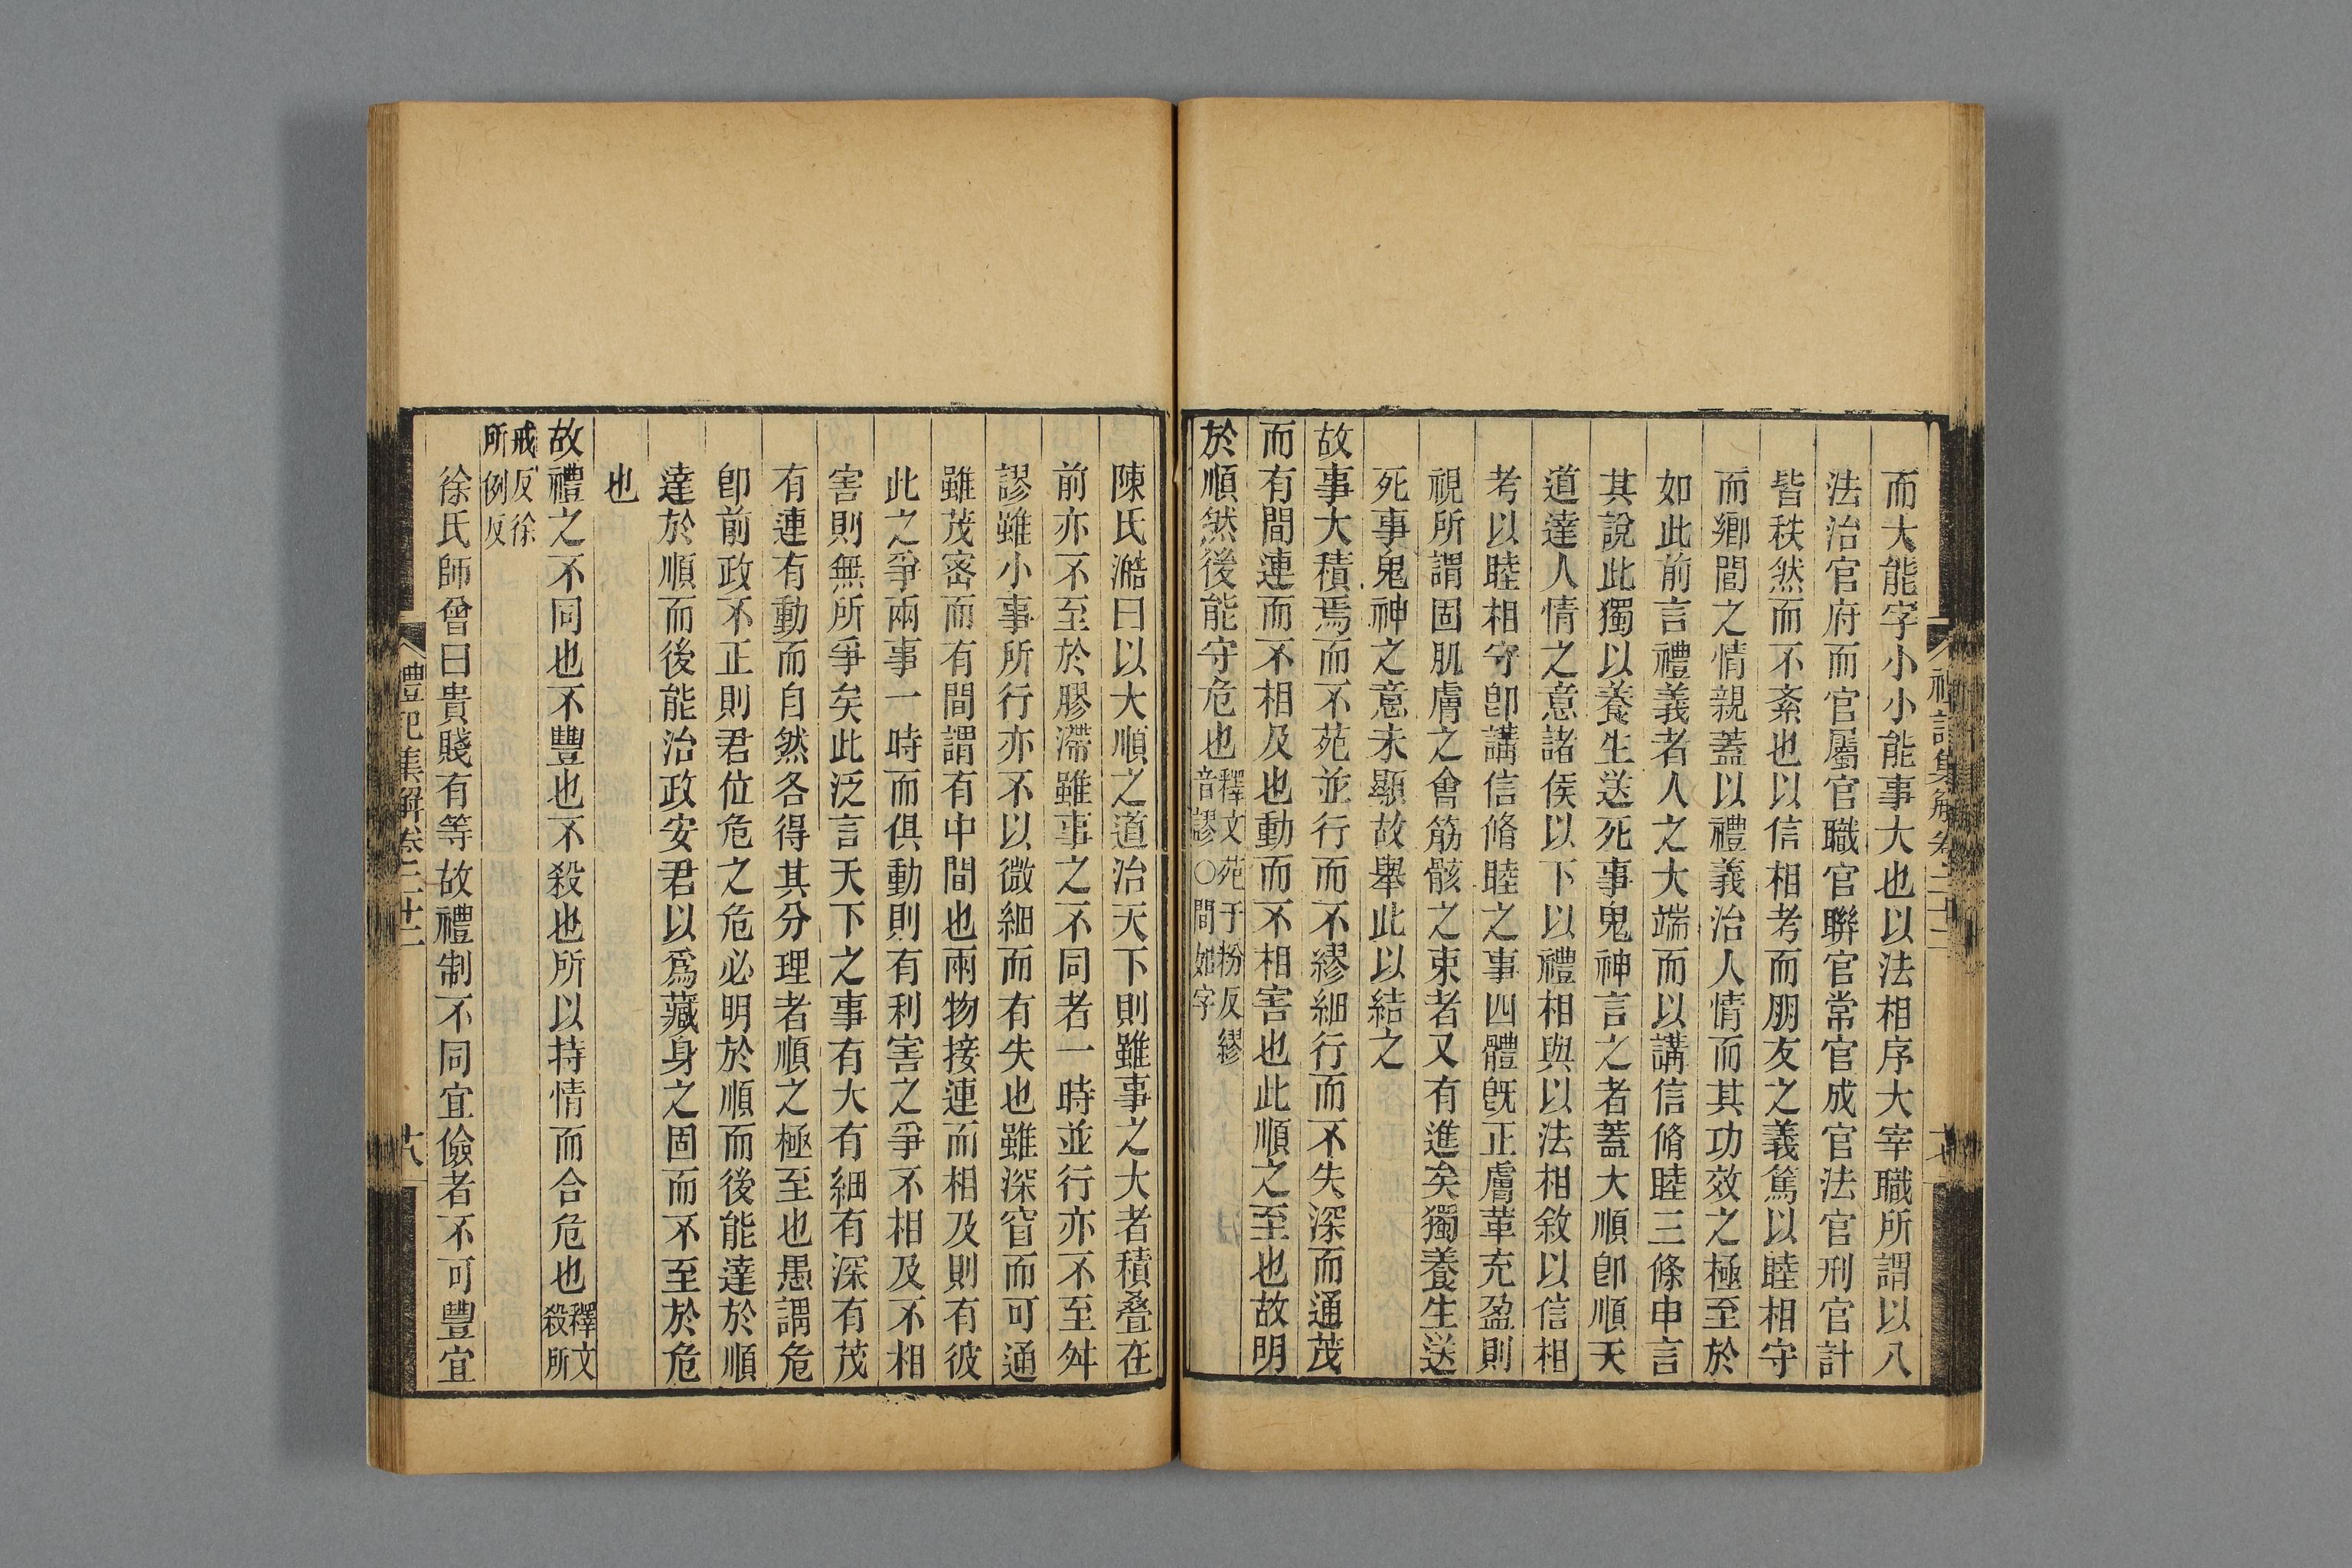 而大能字小小能事大也以法相序大宰職所謂以八
法治官府而官屬官職官聯官常官成官法官刑官計
皆秩然而不紊也以信相考而朋友之義篤以睦相守
而鄉閭之情親蓋以禮義治人情而其功效之極至於
如此前言禮義者人之大端而以講信脩睦三條申言
其說此獨以養生送死事鬼神言之者蓋大順卽順天
道達人情之意諸侯以下以禮相與以法相敘以信相
考以睦相守卽講信脩睦之事四體旣正膚革充盈則
視所謂固肌膚之會筋骸之束者又有進矣獨養生送
死事鬼神之意未顯故舉此以結之
故事大積焉而不苑並行而不繆細行而不失深而通茂
而有間連而不相及也動而不相害也此順之至也故明
於順然後能守危也釋文苑于粉反繆
音謬○間如字
陳氏澔曰以大順之道治天下則雖事之大者積叠在
前亦不至於膠滯雖事之不同者一時並行亦不至舛
謬雖小事所行亦不以微細而有失也雖深窅而可通
雖茂密而有間謂有中間也兩物接連而相及則有彼
此之爭兩事一時而俱動則有利害之爭不相及不相
害則無所爭矣此泛言天下之事有大有細有深有茂
有連有動而自然各得其分理者順之極至也愚謂危
卽前政不正則君位危之危必明於順而後能達於順
達於順而後能治政安君以爲藏身之固而不至於危
也
故禮之不同也不豐也不殺也所以持情而合危也釋文
殺所
戒反徐
所例反
徐氏師曾曰貴賤有等故禮制不同宜儉者不可豐宜
禮記集解卷二十二